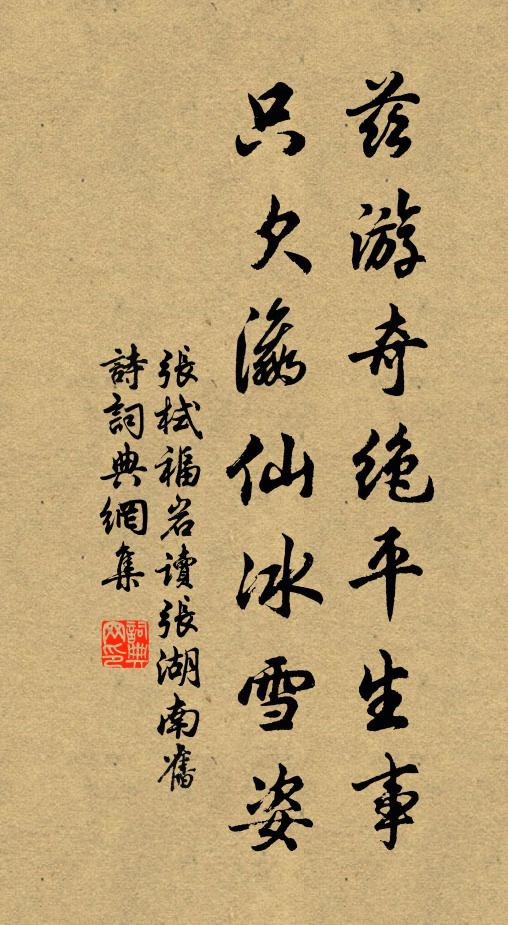 兹游奇绝平生事
只欠瀛仙冰雪姿
張栻福岩讀張湖南舊
詩詞典網集
詞典
网印